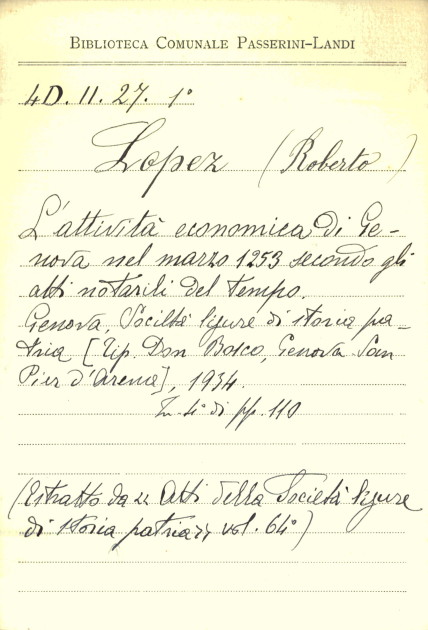 BIBLIOTECA COMUNALE PASSERINI-LANDI
4D. II. 27. 1°
Lopez (Roberto)
L'attività economica di Ge-
nova nel marzo 1253 secondo gli
atti notarili del tempo.
Genova, Società ligure di storia pa-
tria [Tip. Don Bosco, Genova San
Pier d'Arena], 1934.
In-4° di pp. 110
(Estratto da "Atti della Società ligure
di storia patria", vol. 64°)